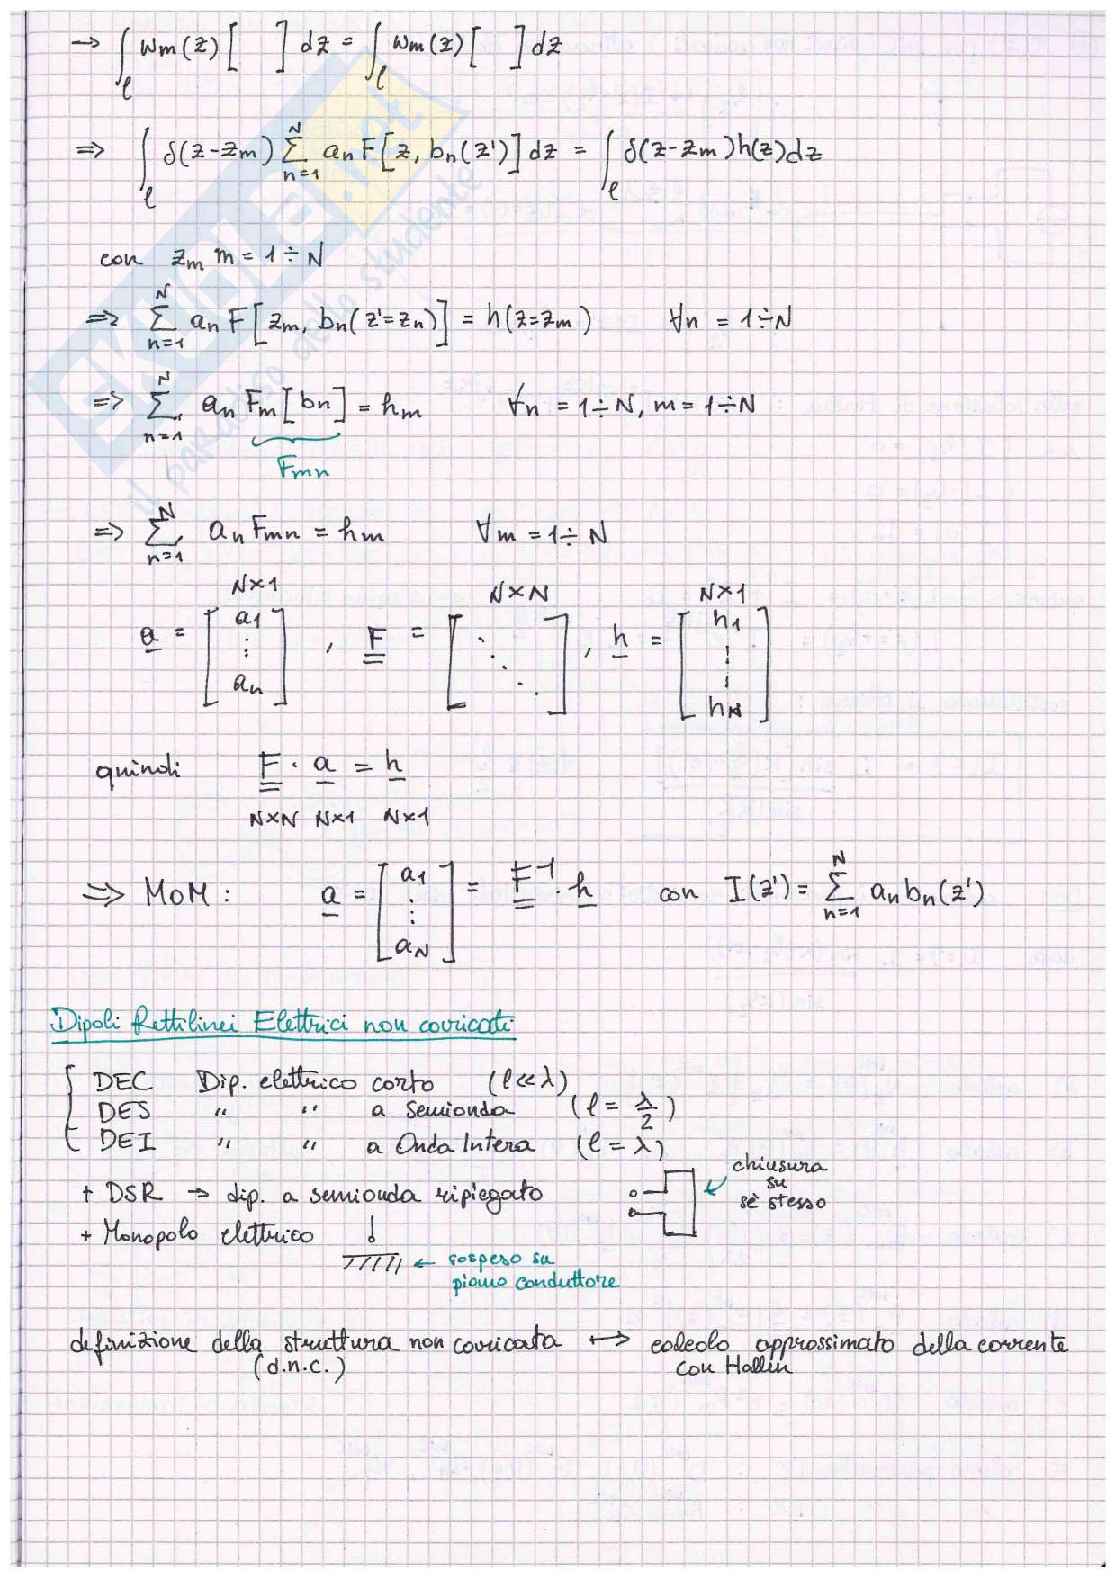 → ∫_ℓ wm(z) [ ] dz = ∫_ℓ wm(z) [ ] dz
⇒ ∫_ℓ δ(z-zm) Σ_{n=1}^{N} an F[z, bn(z')] dz = ∫_ℓ δ(z-zm) h(z) dz
con zm m = 1÷N
⇒ Σ_{n=1}^{N} an F[zm, bn(z'=zn)] = h(z=zm) ∀n = 1÷N
⇒ Σ_{n=1}^{N} an Fm[bn] = hm ∀n = 1÷N, m = 1÷N
Fmn
⇒ Σ_{n=1}^{N} an Fmn = hm ∀m = 1÷N
N×1 N×N N×1
a = [a1 ⋮ an] , F = [⋱] , h = [h1 ⋮ hN]
quindi F · a = h
N×N N×1 N×1
⇒ MoM: a = [a1 ⋮ aN] = F⁻¹ · h con I(z') = Σ_{n=1}^{N} an bn(z')
Dipoli Rettilinei Elettrici non caricati
DEC Dip. elettrico corto (ℓ<<λ)
DES " " a Semionda (ℓ = λ/2)
DEI " " a Onda Intera (ℓ = λ)
+ DSR → dip. a semionda ripiegato
chiusura
su
sè stesso
+ Monopolo elettrico
← sospeso su
piano conduttore
definizione della struttura non caricata ↔ calcolo approssimato della corrente
(d.n.c.) con Hallén
il paradiso dello studente